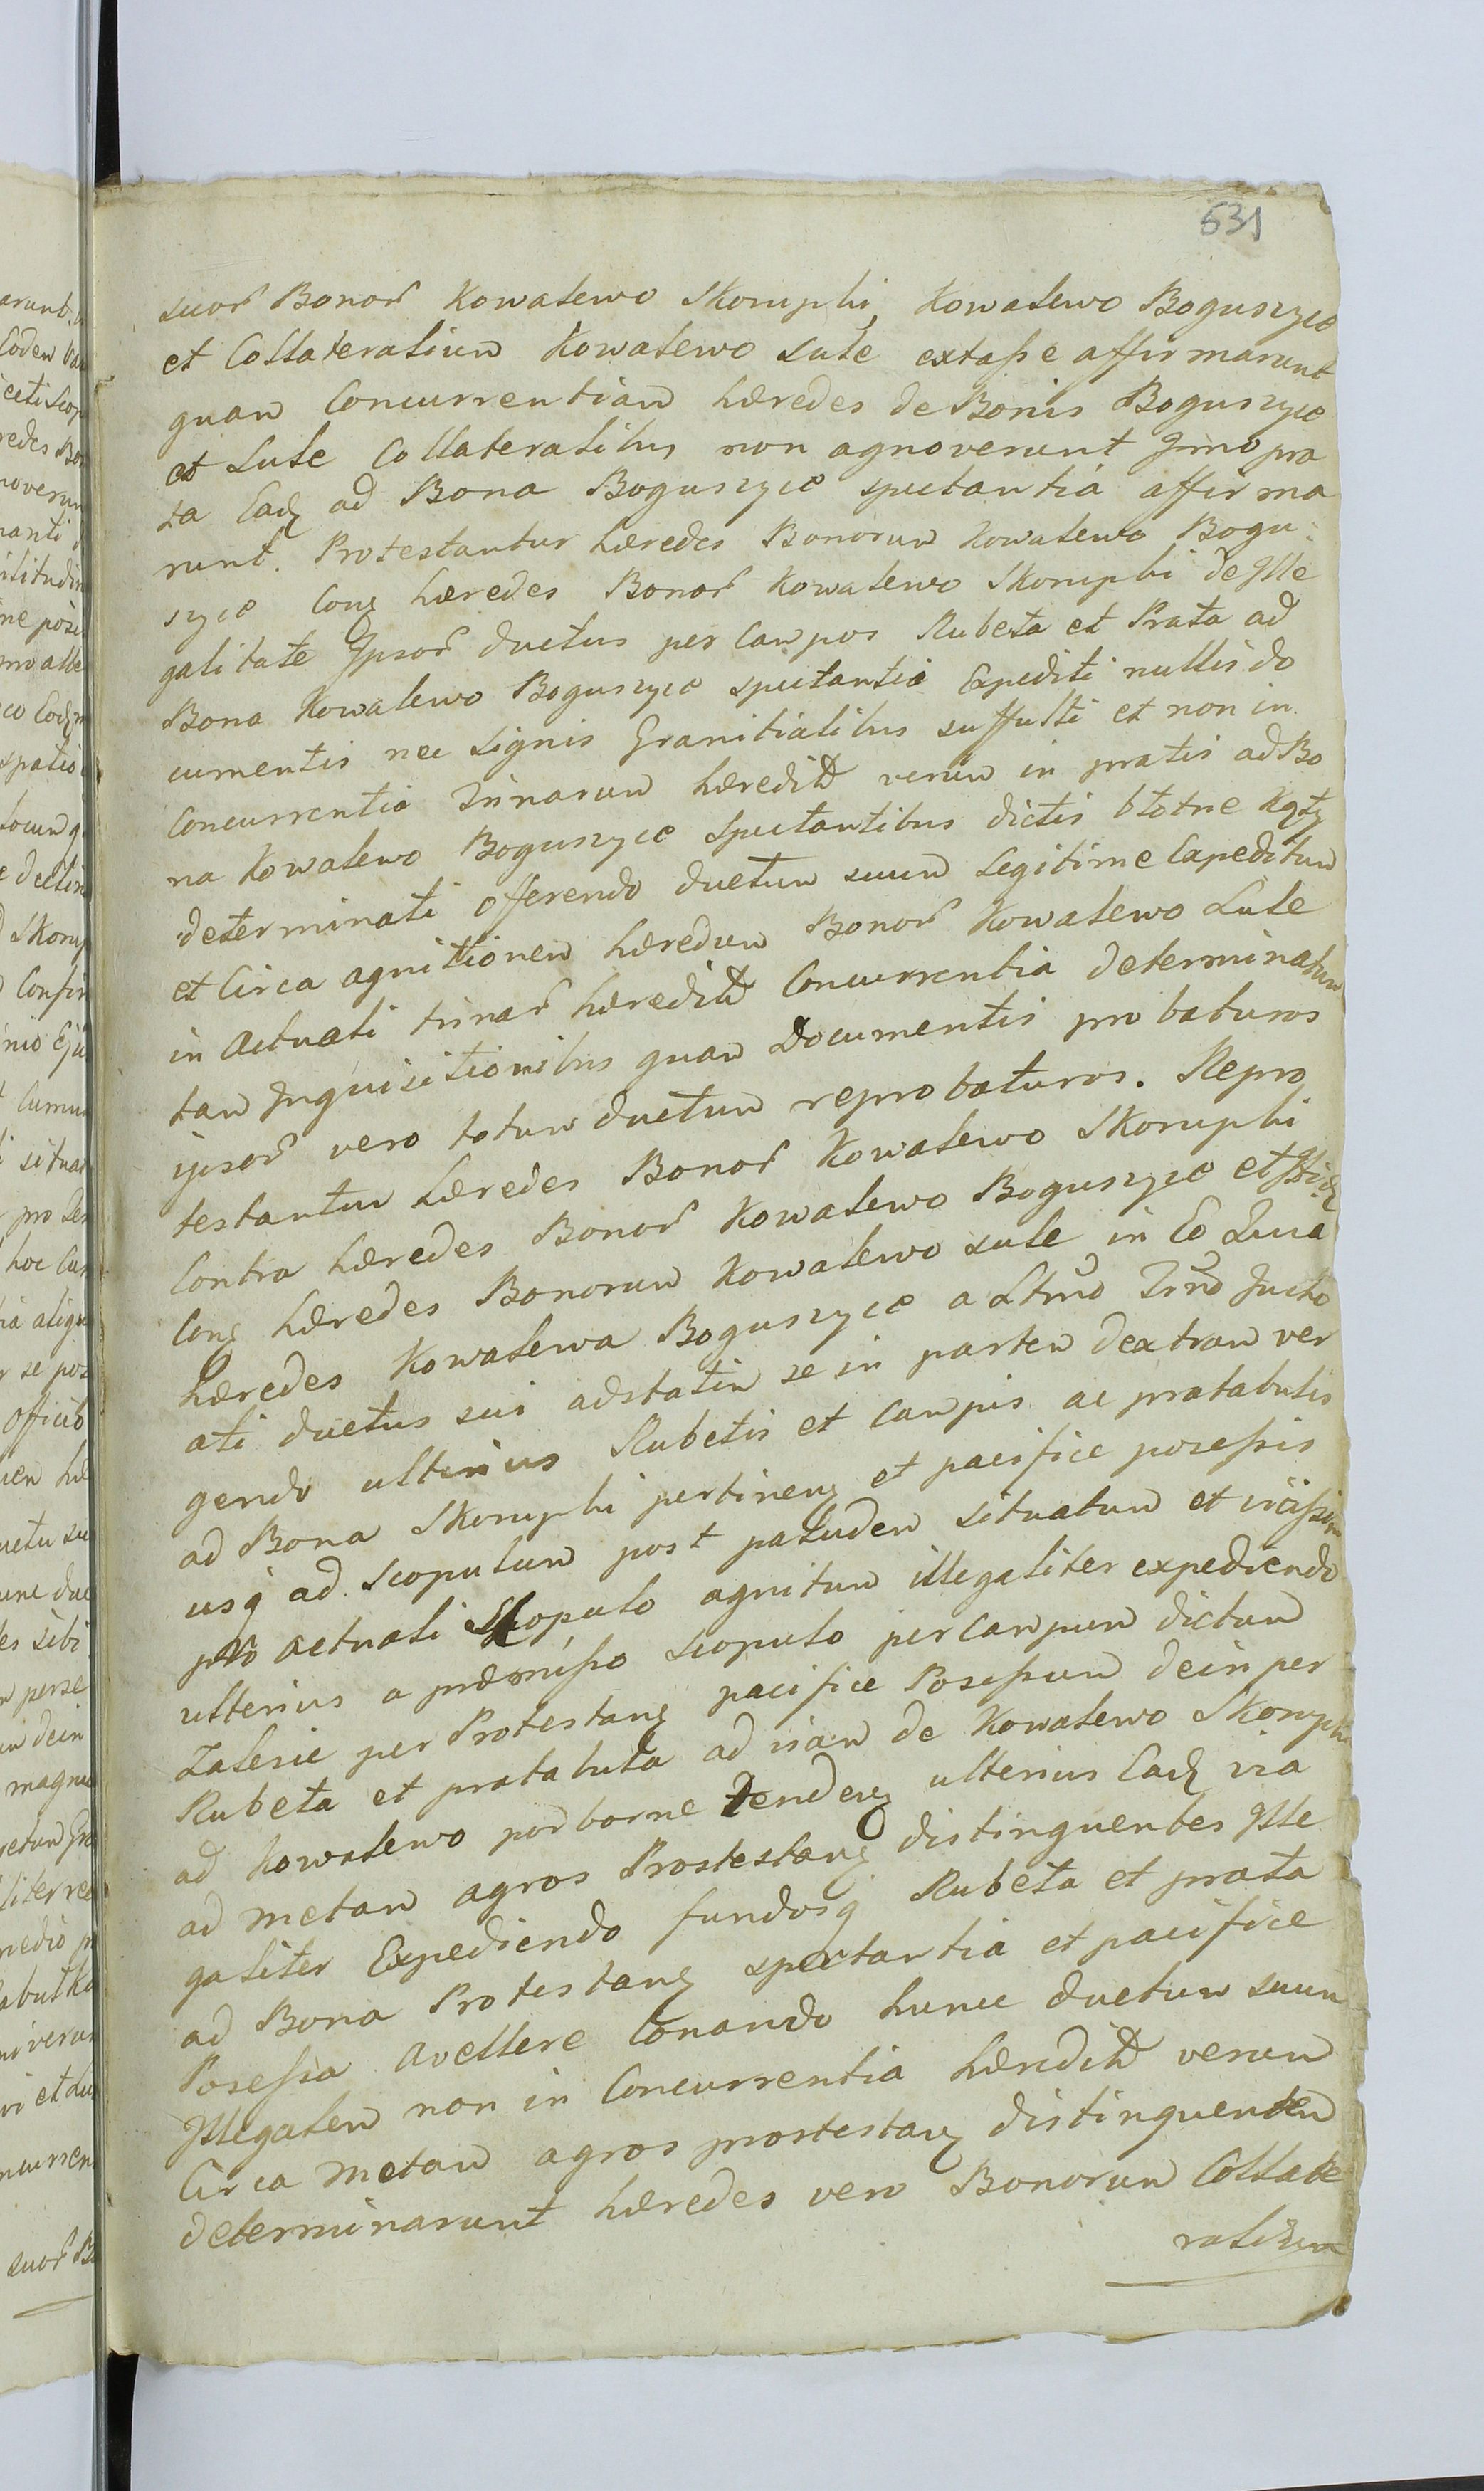 631
suor Bonor Kowalewo Skoruphi, Kowalewo Boguszyce
et Collateralium Kowalewo Sule extasse affirmarunt
quam Concurrentiam hæredes de Bonis Boguszyce
et Sule Collateralibus non agnoverunt Imo pra
ta Eadz ad Bona Boguszyce spectantia affirma
runt. Protestantur hæredes Bonorum Kowalewo Bogu:
szyce Conz hæredes Bonor Kowalewo Skoruphi de Ille
galitate Ipsor ductus per Campos Rubeta et Prata ad
Bona Kowalewo Boguszyce spectantia Expediti nullis do
cumentis nec signis Granitialibus suffulti et non in
Concurrentia Trinarum hæredit verum in pratis ad Bo
na Kowalewo Boguszyce Spectantibus dictis błotne Kąty
determinati offerendo ductum suum Legitime Expeditum
et Circa agnitionem hæredum Bonor Kowalewo Sule
in actuali trinar hæredit Concurrentia determinatum
tam Inquisitionibus quam Documentis probaturos
ipsor vero totum ductum reprobaturos. Repro
testantur hæredes Bonor Kowalewo Skoruphi
Contra hæredes Bonor Kowalewo Boguszyce et
Conz hæredes Bonorum Kowalewo sule in Eo Quia
hæredes Kowalewa Boguszyce a Ltmo Trno Incho
ati ductus sui adstatim se in partem dextram ver
gendo ulterius Rubetis et campis ac pratabulis
ad Bona Skoruphi pertinenz et pacifice posessis
usq ad Scopulum post paludem situatum et
pro actuali Scopulo agnitum illegaliter expediendo
ulterius a præmisso scopulo per campum dictum
Zalesie per Protestanz pacifice Posessum dein per
Rubeta et pratabula ad viam de Kowalewo Skoruphi
ad Kowalewo podborne tendenz ulterius Eadz via
ad metam agros Prostestanz distinguentes Ille
galiter Expediendo fundosq Rubeta et prata
ad Bona Protestanz spectantia et pacifice
Posessa avellere Conando hunc ductum suum
Illegalem non in Concurrentia hæredit verum
Circa metam agros prostestanz distinguentem
determinarunt hæredes vero Bonorum Collate
ralium